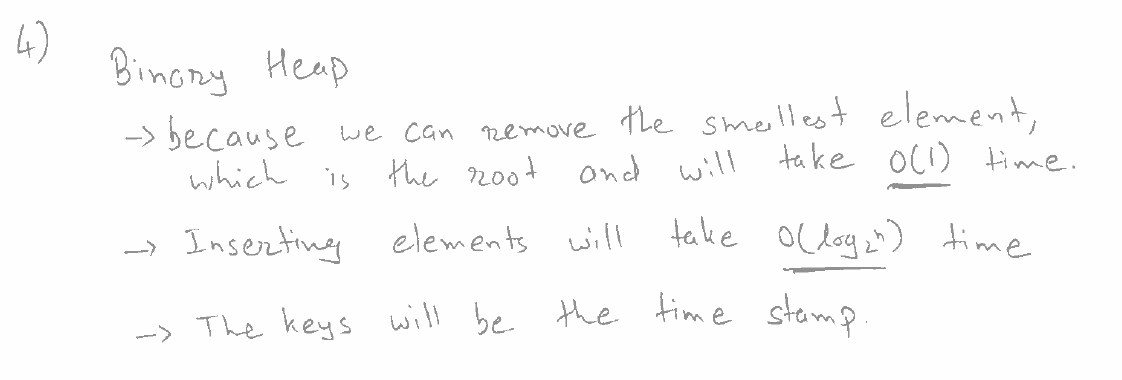 4)
Binary Heap
→ because we can remove the smallest element,
which is the root and will take O(1) time.
→ Inserting elements will take O(log₂ⁿ) time
→ The keys will be the time stamp.